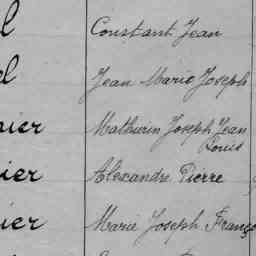 l Constant Jean
el Jean Marie Joseph
nier Mathurin Joseph Jean
Louis
ier Alexandre Pierre
ier Marie Joseph Franço